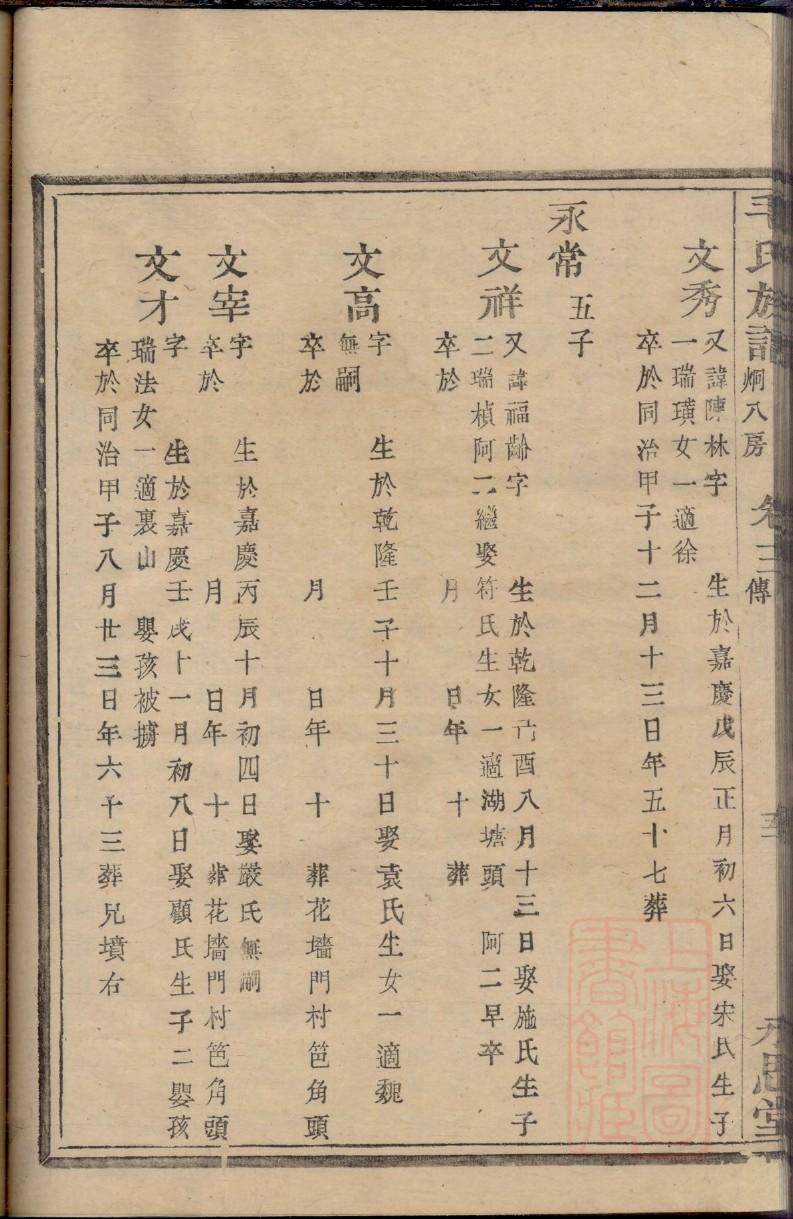 毛氏族譜 炯八房 卷三 傳 永思堂
文秀
又諱陳林字 生於嘉慶戊辰正月初六日娶宋氏生子
一瑞璜女一適徐
卒於同治甲子十二月十三日年五十七葬
永常 五子
文祥
又諱福齡字 生於乾隆己酉八月十三日娶施氏生子
二瑞楨阿二繼娶符氏生女一適湖塘頭 阿二早卒
卒於 月 日年 十 葬
文高
字 生於乾隆壬子十月三十日娶袁氏生女一適魏
無嗣
卒於 月 日年 十 葬花墻門村笆角頭
文宰
字 生於嘉慶丙辰十月初四日娶嚴氏無嗣
卒於 月 日年 十 葬花墻門村笆角頭
文才
字 生於嘉慶壬戌十一月初八日娶顧氏生子二嬰孩
瑞法女一適裏山 嬰孩被擄
卒於同治甲子八月廿三日年六十三葬兄墳右
上海圖書館藏